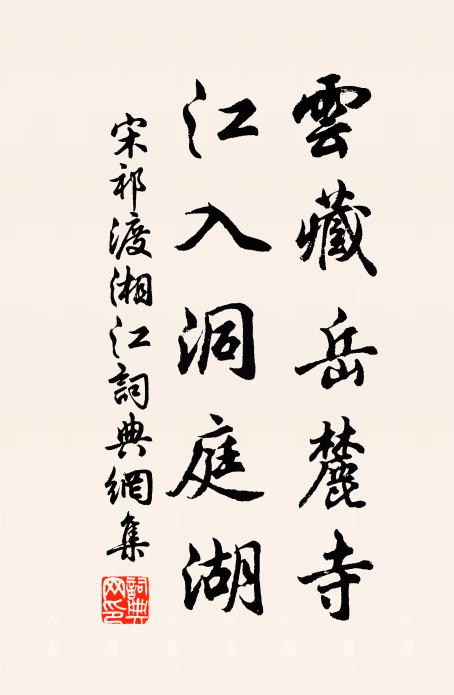 雲藏岳麓寺
江入洞庭湖
宋祁渡湘江詞典網集
詞典網印